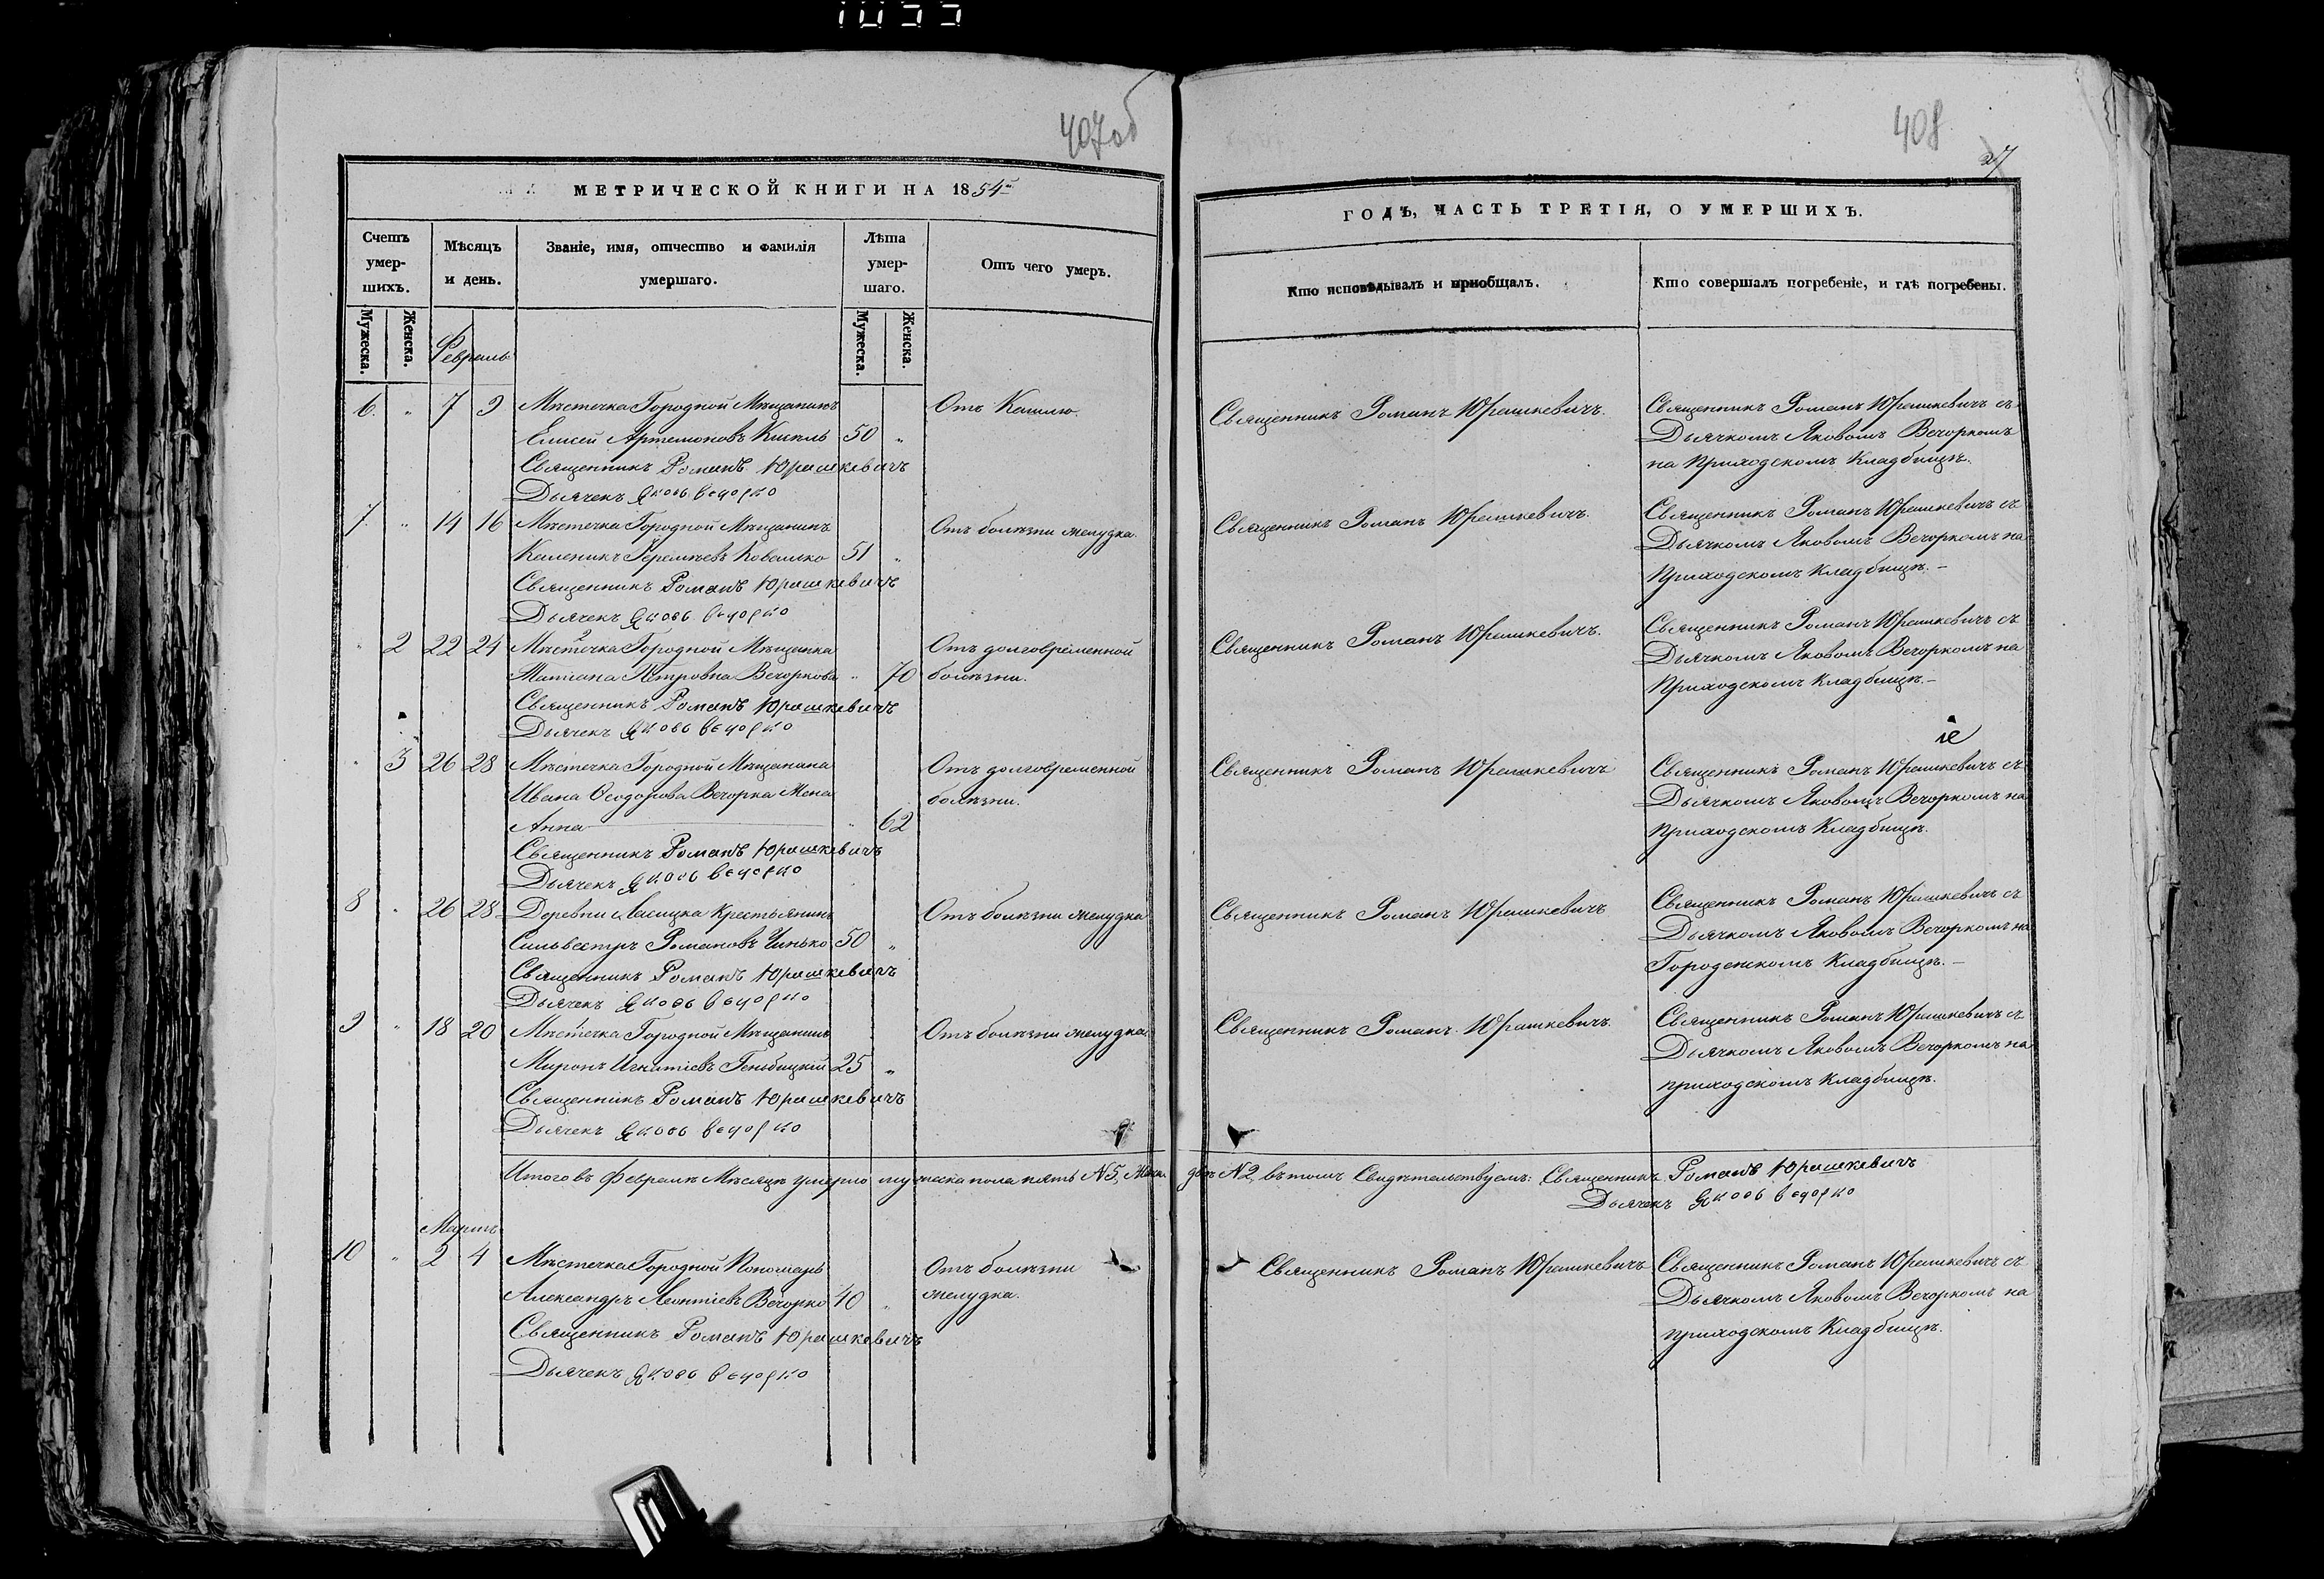 407об
МЕТРИЧЕСКОЙ КНИГИ НА 1854
Счетъ умер-шихъ.
Мѣсяцъ и день.
Званіе, имя, отчество и фамилія умершаго.
Лѣта умер-шаго.
Отъ чего умеръ.
Мужеска. Женска.
Мужеска. Женска.
Февраль
6. " 7 9 Мѣстечка Городной Мѣщанинъ Отъ Кашлю.
Елисей Артемоновъ 50 "
Священникъ Романъ Юрашкевичъ
Дьячекъ Яковъ Вечорко
7. " 14 16 Мѣстечка Городной Мѣщанинъ Отъ болѣзни желудка.
Каленикъ Еремѣевъ Ковалько 51 "
Священникъ Романъ Юрашкевичъ
Дьячекъ Яковъ Вечорко
" 2 22 24 Мѣстечка Городной Мѣщанка Отъ долговременной
Татіана Петровна Вечоркова " 70 болѣзни.
Священникъ Романъ Юрашкевичъ
Дьячекъ Яковъ Вечорко
" 3 26 28 Мѣстечка Городной Мѣщанина Отъ долговременной
Ивана Ѳеодорова Вечорка Жена болѣзни.
Анна " 62
Священникъ Романъ Юрашкевичъ
Дьячекъ Яковъ Вечорко
8 " 26 28 Деревни Лисицка Крестьянинъ Отъ болѣзни желудка
Сильвестръ Романовъ Чинько 50 "
Священникъ Романъ Юрашкевичъ
Дьячекъ Яковъ Вечорко
9 " 18 20 Мѣстечка Городной Мѣщанинъ Отъ болѣзни желудка.
Миронъ Игнатіевъ 25 "
Священникъ Романъ Юрашкевичъ
Дьячекъ Яковъ Вечорко
Итого въ Февралѣ Мѣсяцѣ умерло мужеска пола пять N5, Женска
Мартъ
10 " 2 4 Мѣстечка Городной Пономарь Отъ болѣзни
Александръ Леонтіевъ Вечорко 40 " желудка.
Священникъ Романъ Юрашкевичъ
Дьячекъ Яковъ Вечорко
408
27
ГОДЪ, ЧАСТЬ ТРЕТІЯ, О УМЕРШИХЪ.
Кто исповѣдывалъ и пріобщалъ.
Кто совершалъ погребеніе, и гдѣ погребены.
Священникъ Романъ Юрашкевичъ. Священникъ Романъ Юрашкевичъ съ
Дьячкомъ Яковомъ Вечоркомъ
на Приходскомъ Кладбищѣ.
Священникъ Романъ Юрашкевичъ. Священникъ Романъ Юрашкевичъ съ
Дьячкомъ Яковомъ Вечоркомъ на
Приходскомъ Кладбищѣ.
Священникъ Романъ Юрашкевичъ. Священникъ Романъ Юрашкевичъ съ
Дьячкомъ Яковомъ Вечоркомъ на
Приходскомъ Кладбищѣ.
Священникъ Романъ Юрашкевичъ Священникъ Романъ Юрашкевичъ съ
Дьячкомъ Яковомъ Вечоркомъ на
Приходскомъ Кладбищѣ.
Священникъ Романъ Юрашкевичъ Священникъ Романъ Юрашкевичъ съ
Дьячкомъ Яковомъ Вечоркомъ на
Городенскомъ Кладбищѣ.
Священникъ Романъ Юрашкевичъ. Священникъ Романъ Юрашкевичъ съ
Дьячкомъ Яковомъ Вечоркомъ на
приходскомъ Кладбищѣ.
двѣ N2, въ томъ Свидѣтельствуемъ: Священникъ Романъ Юрашкевичъ
Дьячекъ Яковъ Вечорко
Священникъ Романъ Юрашкевичъ Священникъ Романъ Юрашкевичъ съ
Дьячкомъ Яковомъ Вечоркомъ на
приходскомъ Кладбищѣ.